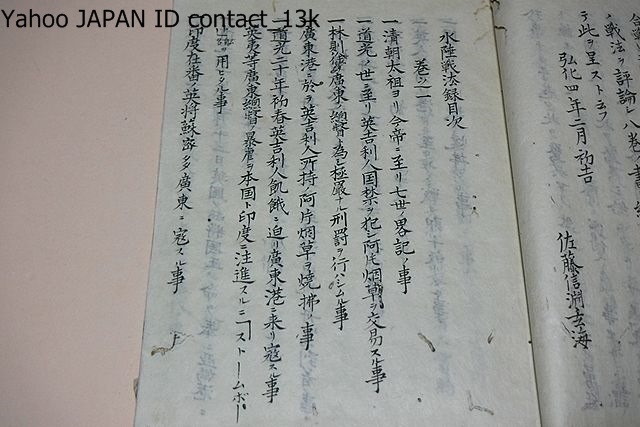 Yahoo JAPAN ID contact_13k
戦法ヲ評論し八巻
テ此ヲ呈ストニフ
弘化四年二月初吉
佐藤信淵玄海
水陸戦法録目次
巻之一
一清朝太祖ヨリ今帝ニ至リ七世ノ畧記ノ事
一道光ノ世ニ至リ英吉利人国禁ヲ犯シ阿片烟草ヲ交易スル事
一林則徐廣東ノ總督ト為シ極厳ナル刑罰ヲ行ハシムル事
廣東港ニ於テ英吉利人所持ノ阿片烟草ヲ焼拂フ事
一道光二十年初春英吉利人飢餓ニ迫リ廣東港ニ来リ寇スル事
英夷等廣東總督ノ暴虐ヲ本国ト印度ニ注進スルニストームボー
ヲ用ヒシ事
印度在番ノ英将蘇容多廣東ニ寇スル事